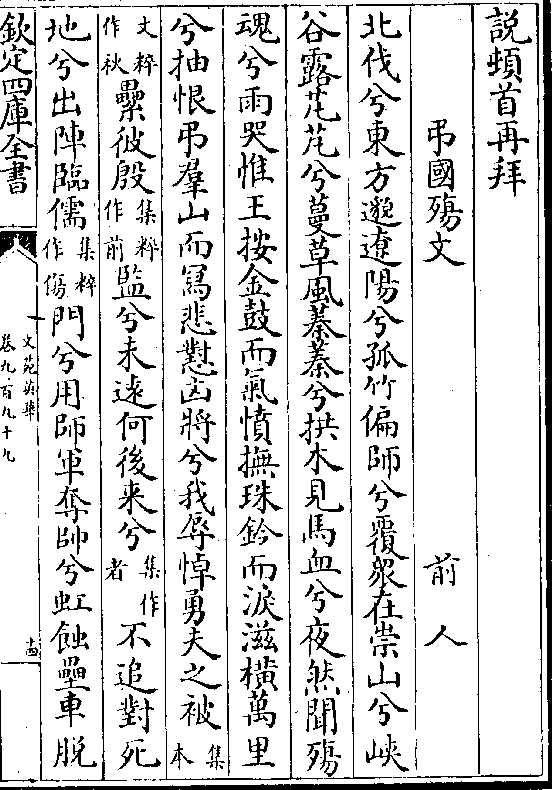 説頓首再拜
弔國殤文　前人
北伐兮東方邈遼陽兮孤竹偏師兮覆衆在崇山兮峽
谷露芃芃兮蔓草風蓁蓁兮拱木見馬血兮夜然聞殤
魂兮雨哭惟王按金鼓而氣憤撫珠鈐而淚滋橫萬里
兮抽恨弔羣山而寫悲懟凶將兮我辱悼勇夫之被集本
文粹作秋纍彼殷集粹作前監兮未遠何後来兮集作者不追對死
地兮出陣臨儒集粹作傷門兮用師軍奪帥兮虹蝕壘車脫
欽定四庫全書
文苑英華
卷九百九十九
十四